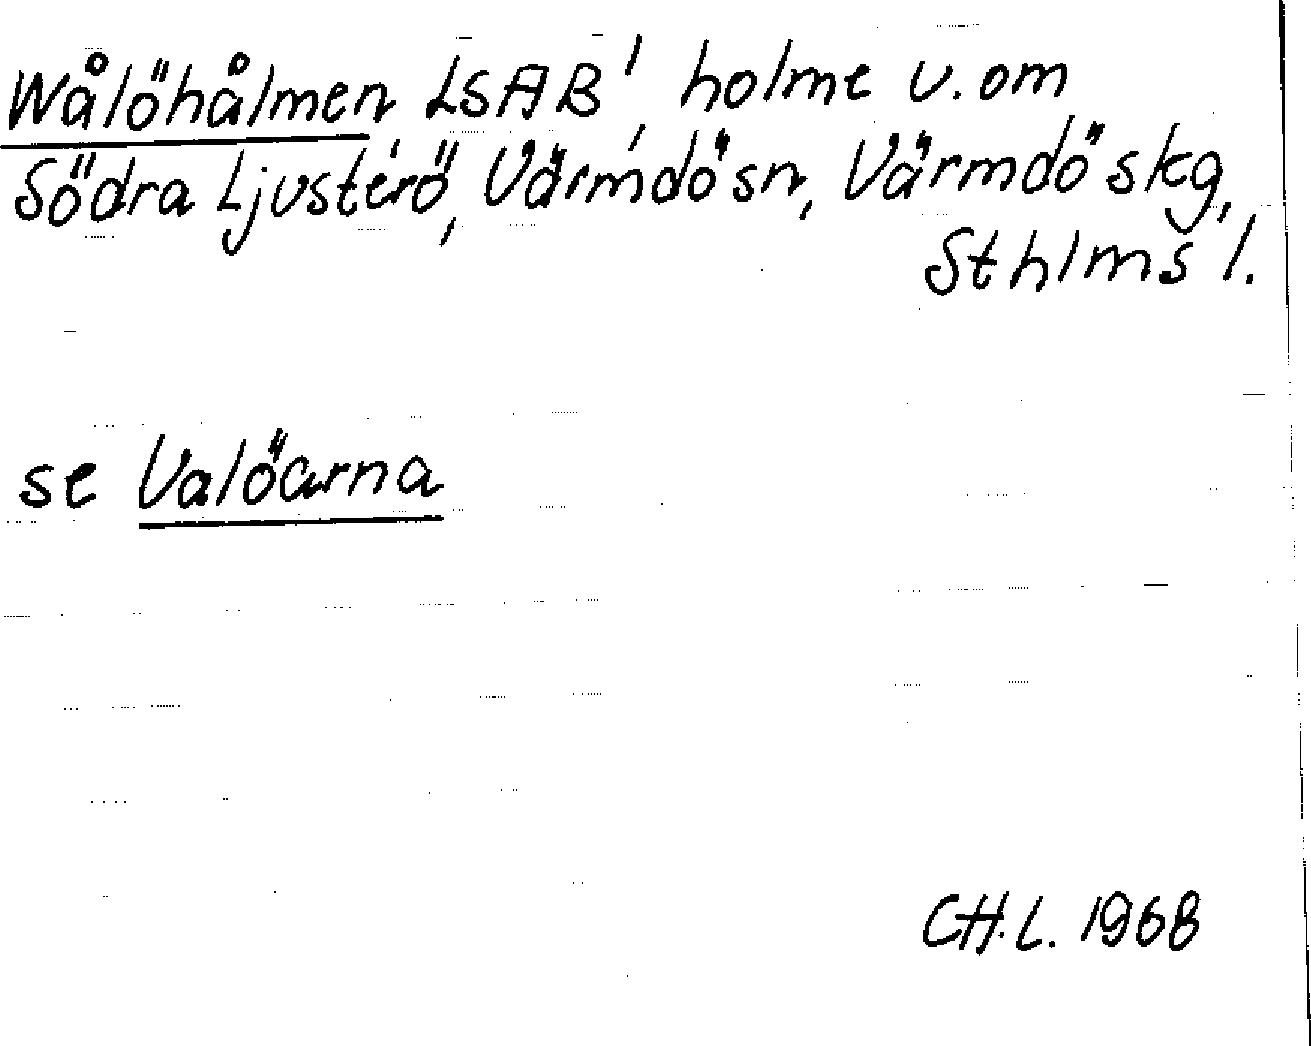 Wålöhålmen LSAB', holme v. om
Södra Ljusterö, Värmdö sn, Värmdö skg,
Sthlms l.
se Valöarna
CH.L. 1968